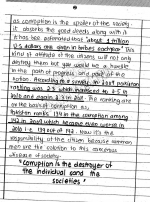 as corruption is the spoiler of the society.
it absorbs the good deeds along with it.
It has been estimated that "about 1 trillion
U.S dollars are given in bribes each year". This
kind of attitude of the citizens will not only
destroy them but you would be a hurdle
in the path of progress and peace of the
nation. According to a survey in 2007 Pakistan
ranking was 2.3 which increased to 2.5 in
and again 2.3 in 2010. The ranking are
on the basis of corruption as,
Pakistan ranks 134 in the corruption among
in 2009 which became even worse in
2010 i.e. 139 out of 178. Now it's the
responsibility of the citizen because common
men are the solution to this common
disease of society.
"Corruption is the destroyer of
the individual and the
societies."